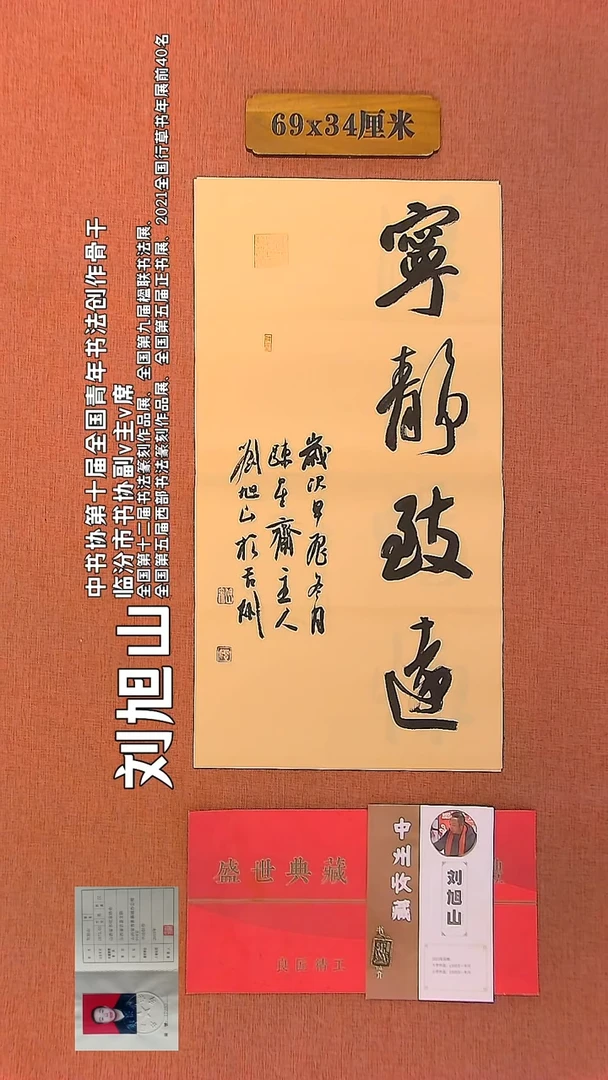 69x34厘米
寧靜致遠
歲次甲辰冬月
陳年齋主人
劉旭山於古
刘旭山
中书协第十届全国青年书法创作骨干
临汾市书协副v主v席
全国第十二届书法篆刻作品展、全国第九届楹联书法展、
全国第五届西部书法篆刻作品展、全国第五届正书展、2021全国行草书年展前40名
盛世典藏
中州收藏
刘旭山